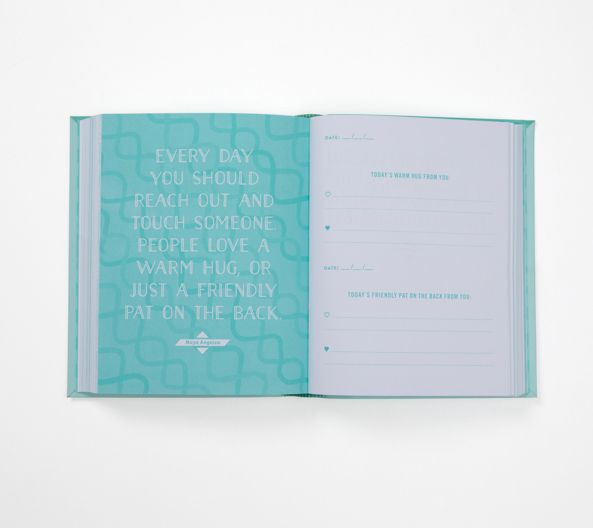 EVERY DAY
YOU SHOULD
REACH OUT AND
TOUCH SOMEONE.
PEOPLE LOVE A
WARM HUG, OR
JUST A FRIENDLY
PAT ON THE BACK.
Maya Angelou
DATE:
TODAY'S WARM HUG FROM YOU:
DATE:
TODAY'S FRIENDLY PAT ON THE BACK FROM YOU: